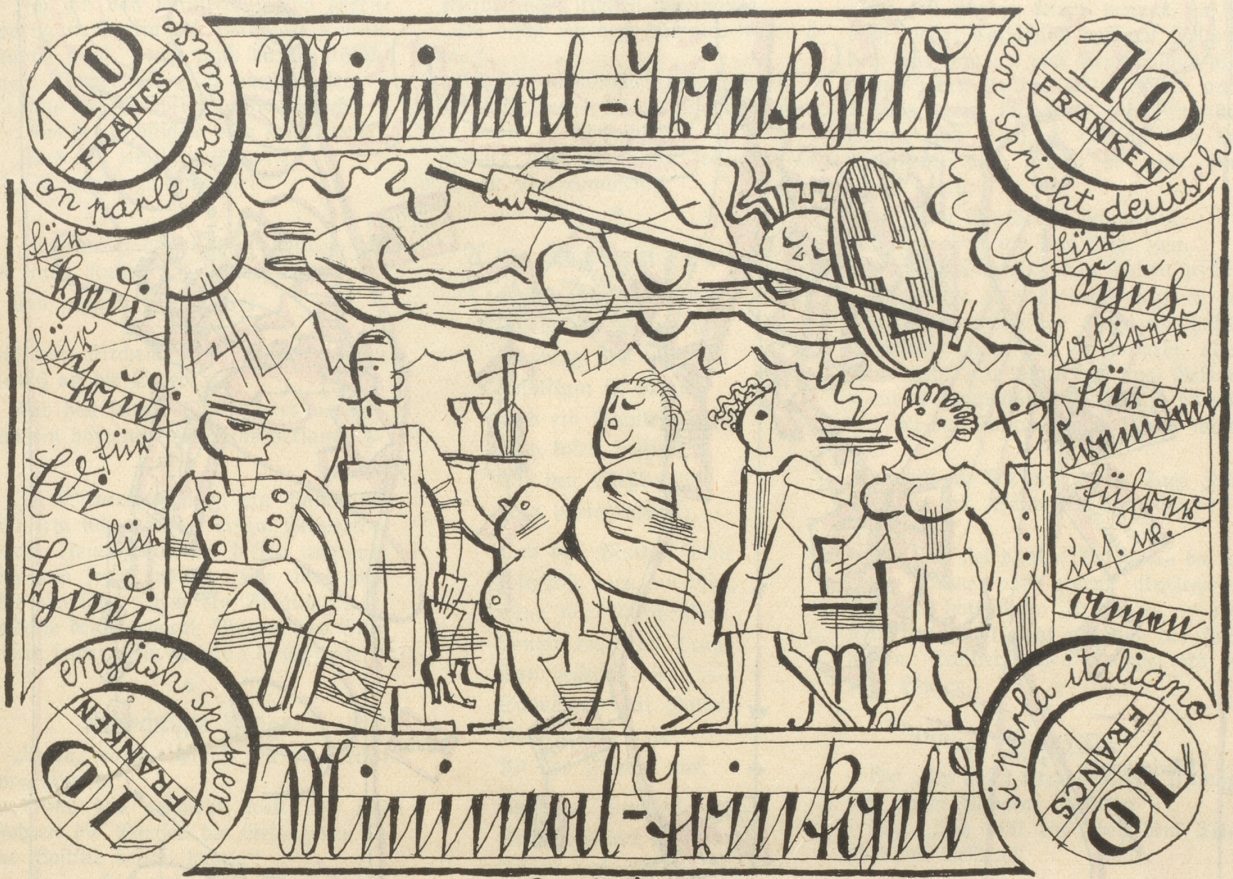 10
FRANCS
on parle francaise
Minimal-Trinkgeld
10
FRANKEN
man spricht deutsch
für
Hedi
für
Trudi
für
für
für
Schuh
lakirer
für
Fremden
führer
u.s.w.
amen
english spoken
10
FRANKEN
Minimal-Trinkgeld
si parla italiano
10
FRANCS